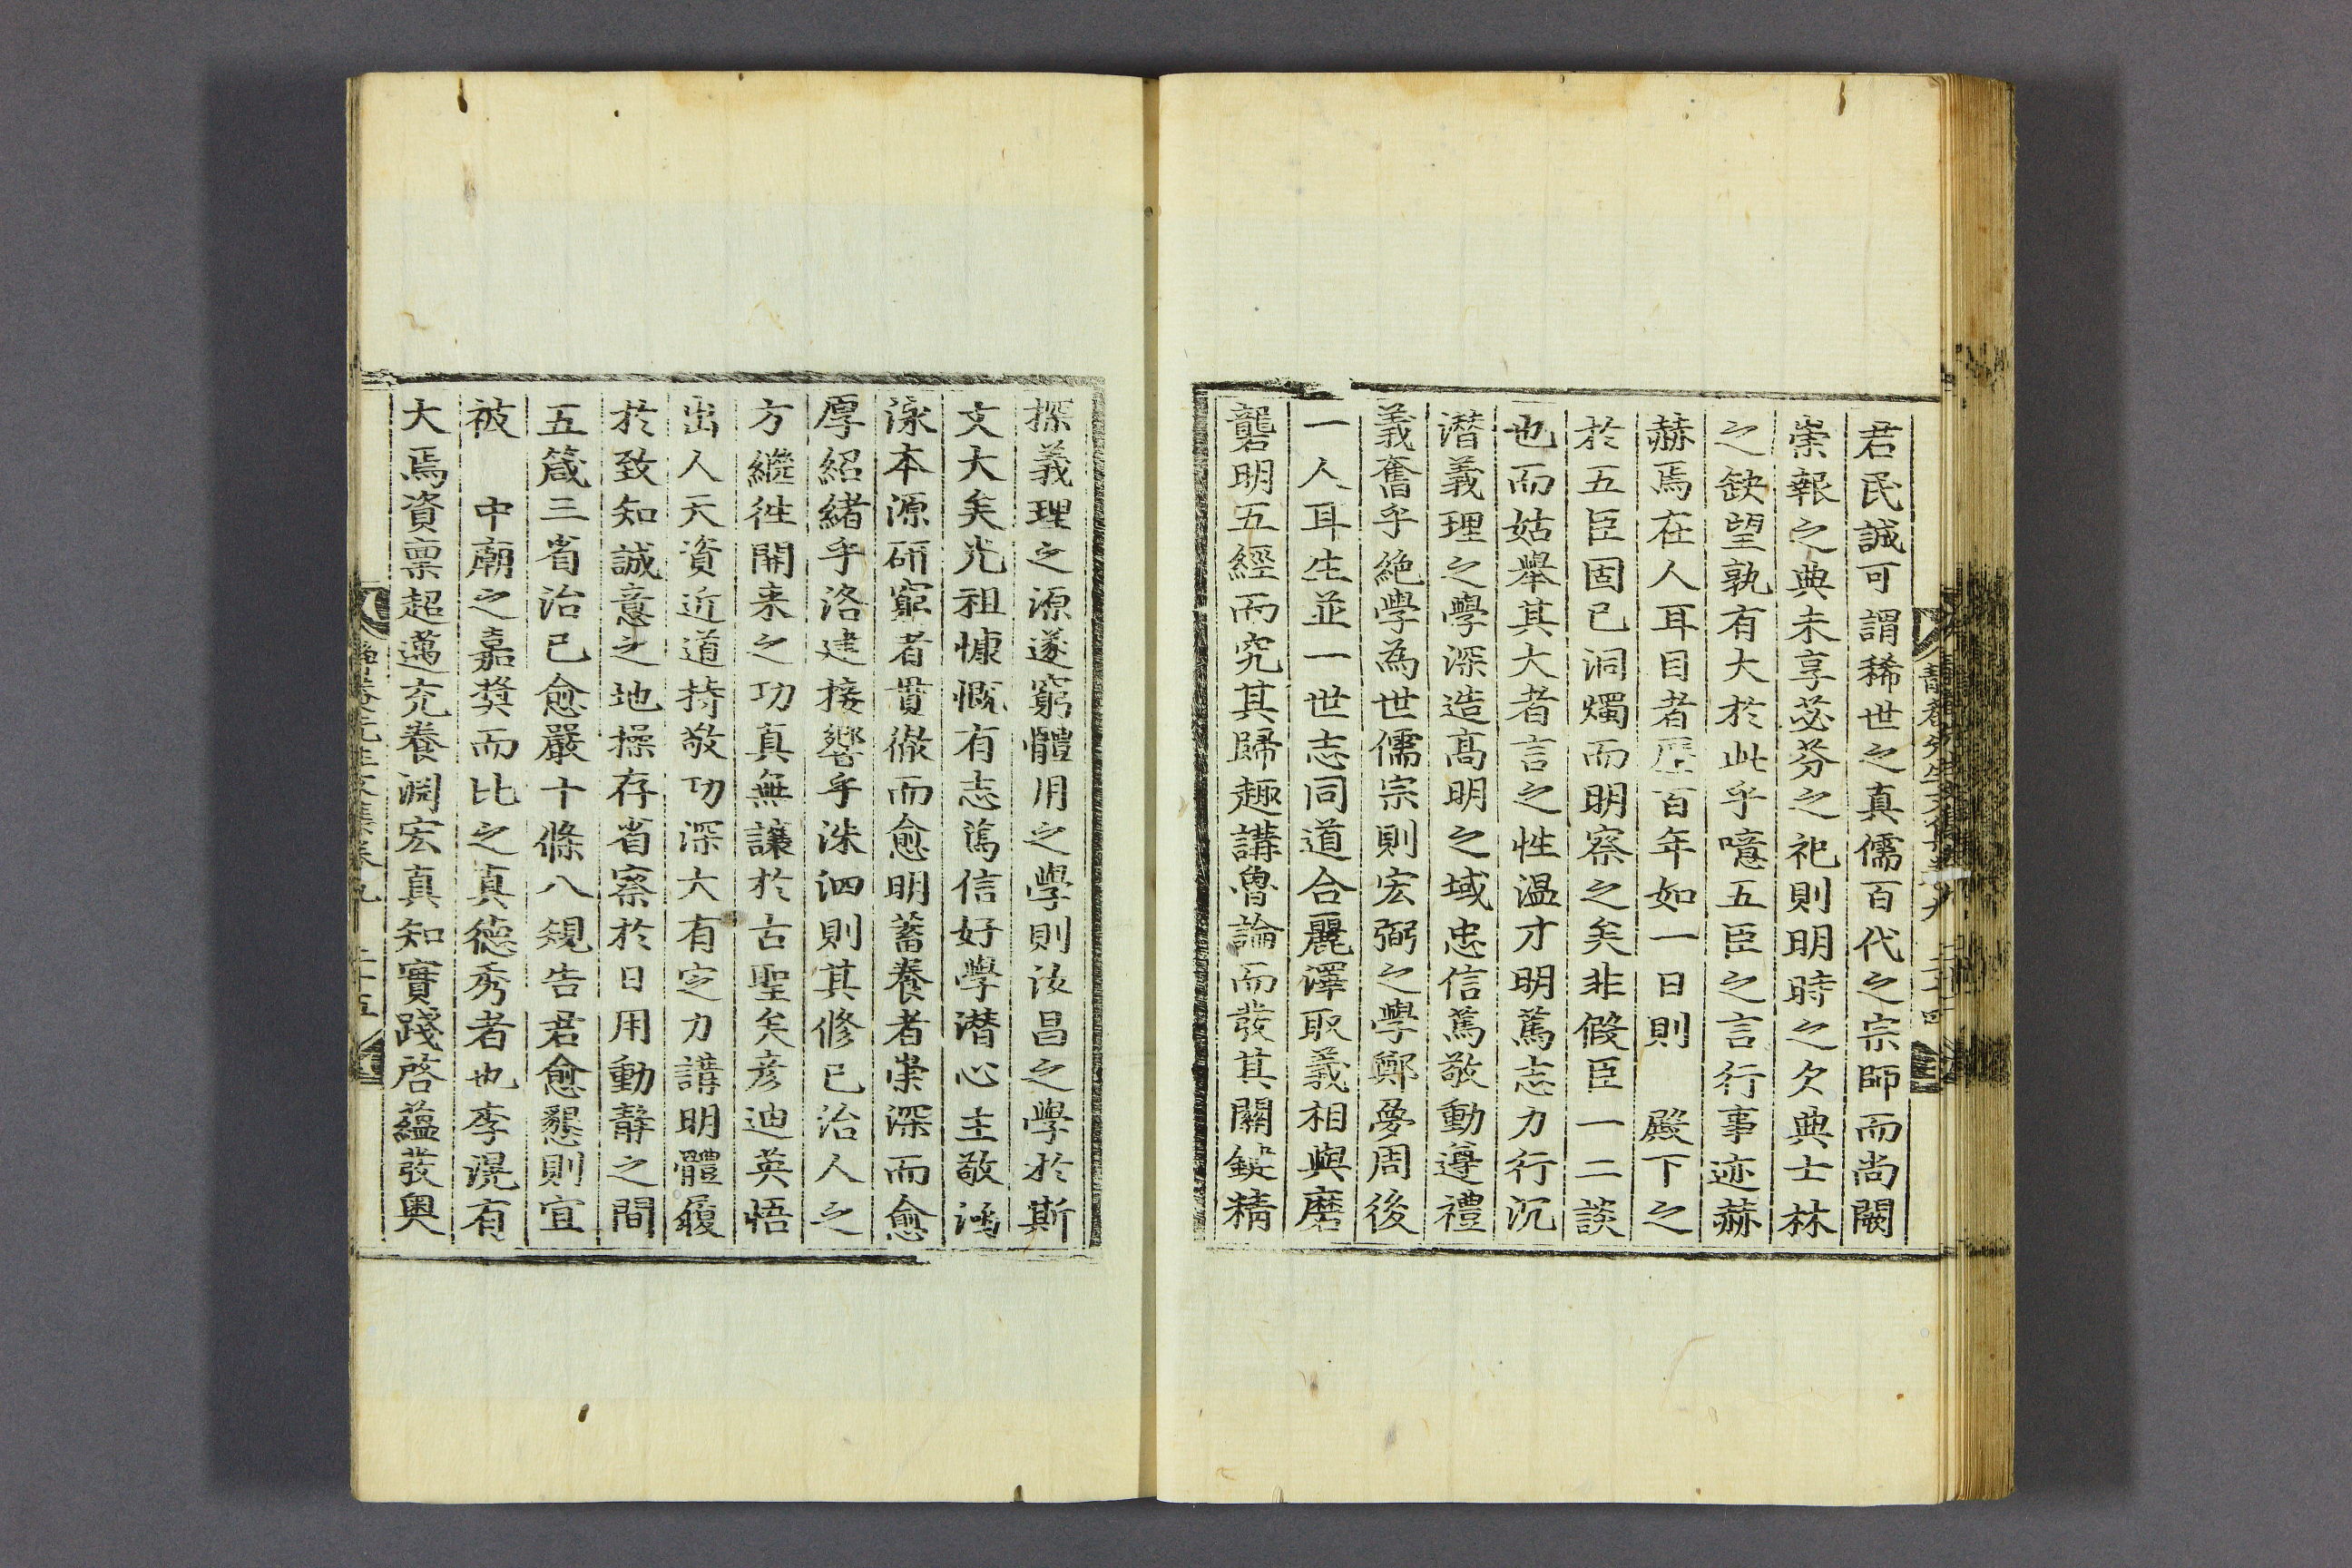 君民誠可謂稀世之真儒百代之宗師而尚闕
崇報之典未享苾芬之祀則明時之欠典士林
之缺望孰有大於此乎噫五臣之言行事迹赫
赫焉在人耳目者歷百年如一日則 殿下之
於五臣固已洞燭而明察之矣非假臣一二談
也而姑舉其大者言之性溫才明篤志力行沉
潛義理之學深造高明之域忠信篤敬動遵禮
義奮乎絕學為世儒宗則宏弼之學鄭夢周後
一人耳生並一世志同道合麗澤取義相與磨
礱明五經而究其歸趣講魯論而發其關鍵精
探義理之源遂窮體用之學則汝昌之學於斯
文大矣光祖慷慨有志篤信好學潛心主敬涵
泳本源研窮者貫徹而愈明蓄養者崇深而愈
厚紹緒乎洛建接響乎洙泗則其修己治人之
方繼往開来之功真無讓於古聖矣彥迪英悟
出人天資近道持敬功深大有定力講明體履
於致知誠意之地操存省察於日用動靜之間
五箴三省治己愈嚴十條八規告君愈懇則宜
被 中廟之嘉奬而比之真德秀者也李滉有
大焉資稟超邁充養淵宏真知實踐啓蘊發奧
靜菴先生文集卷九 二十五